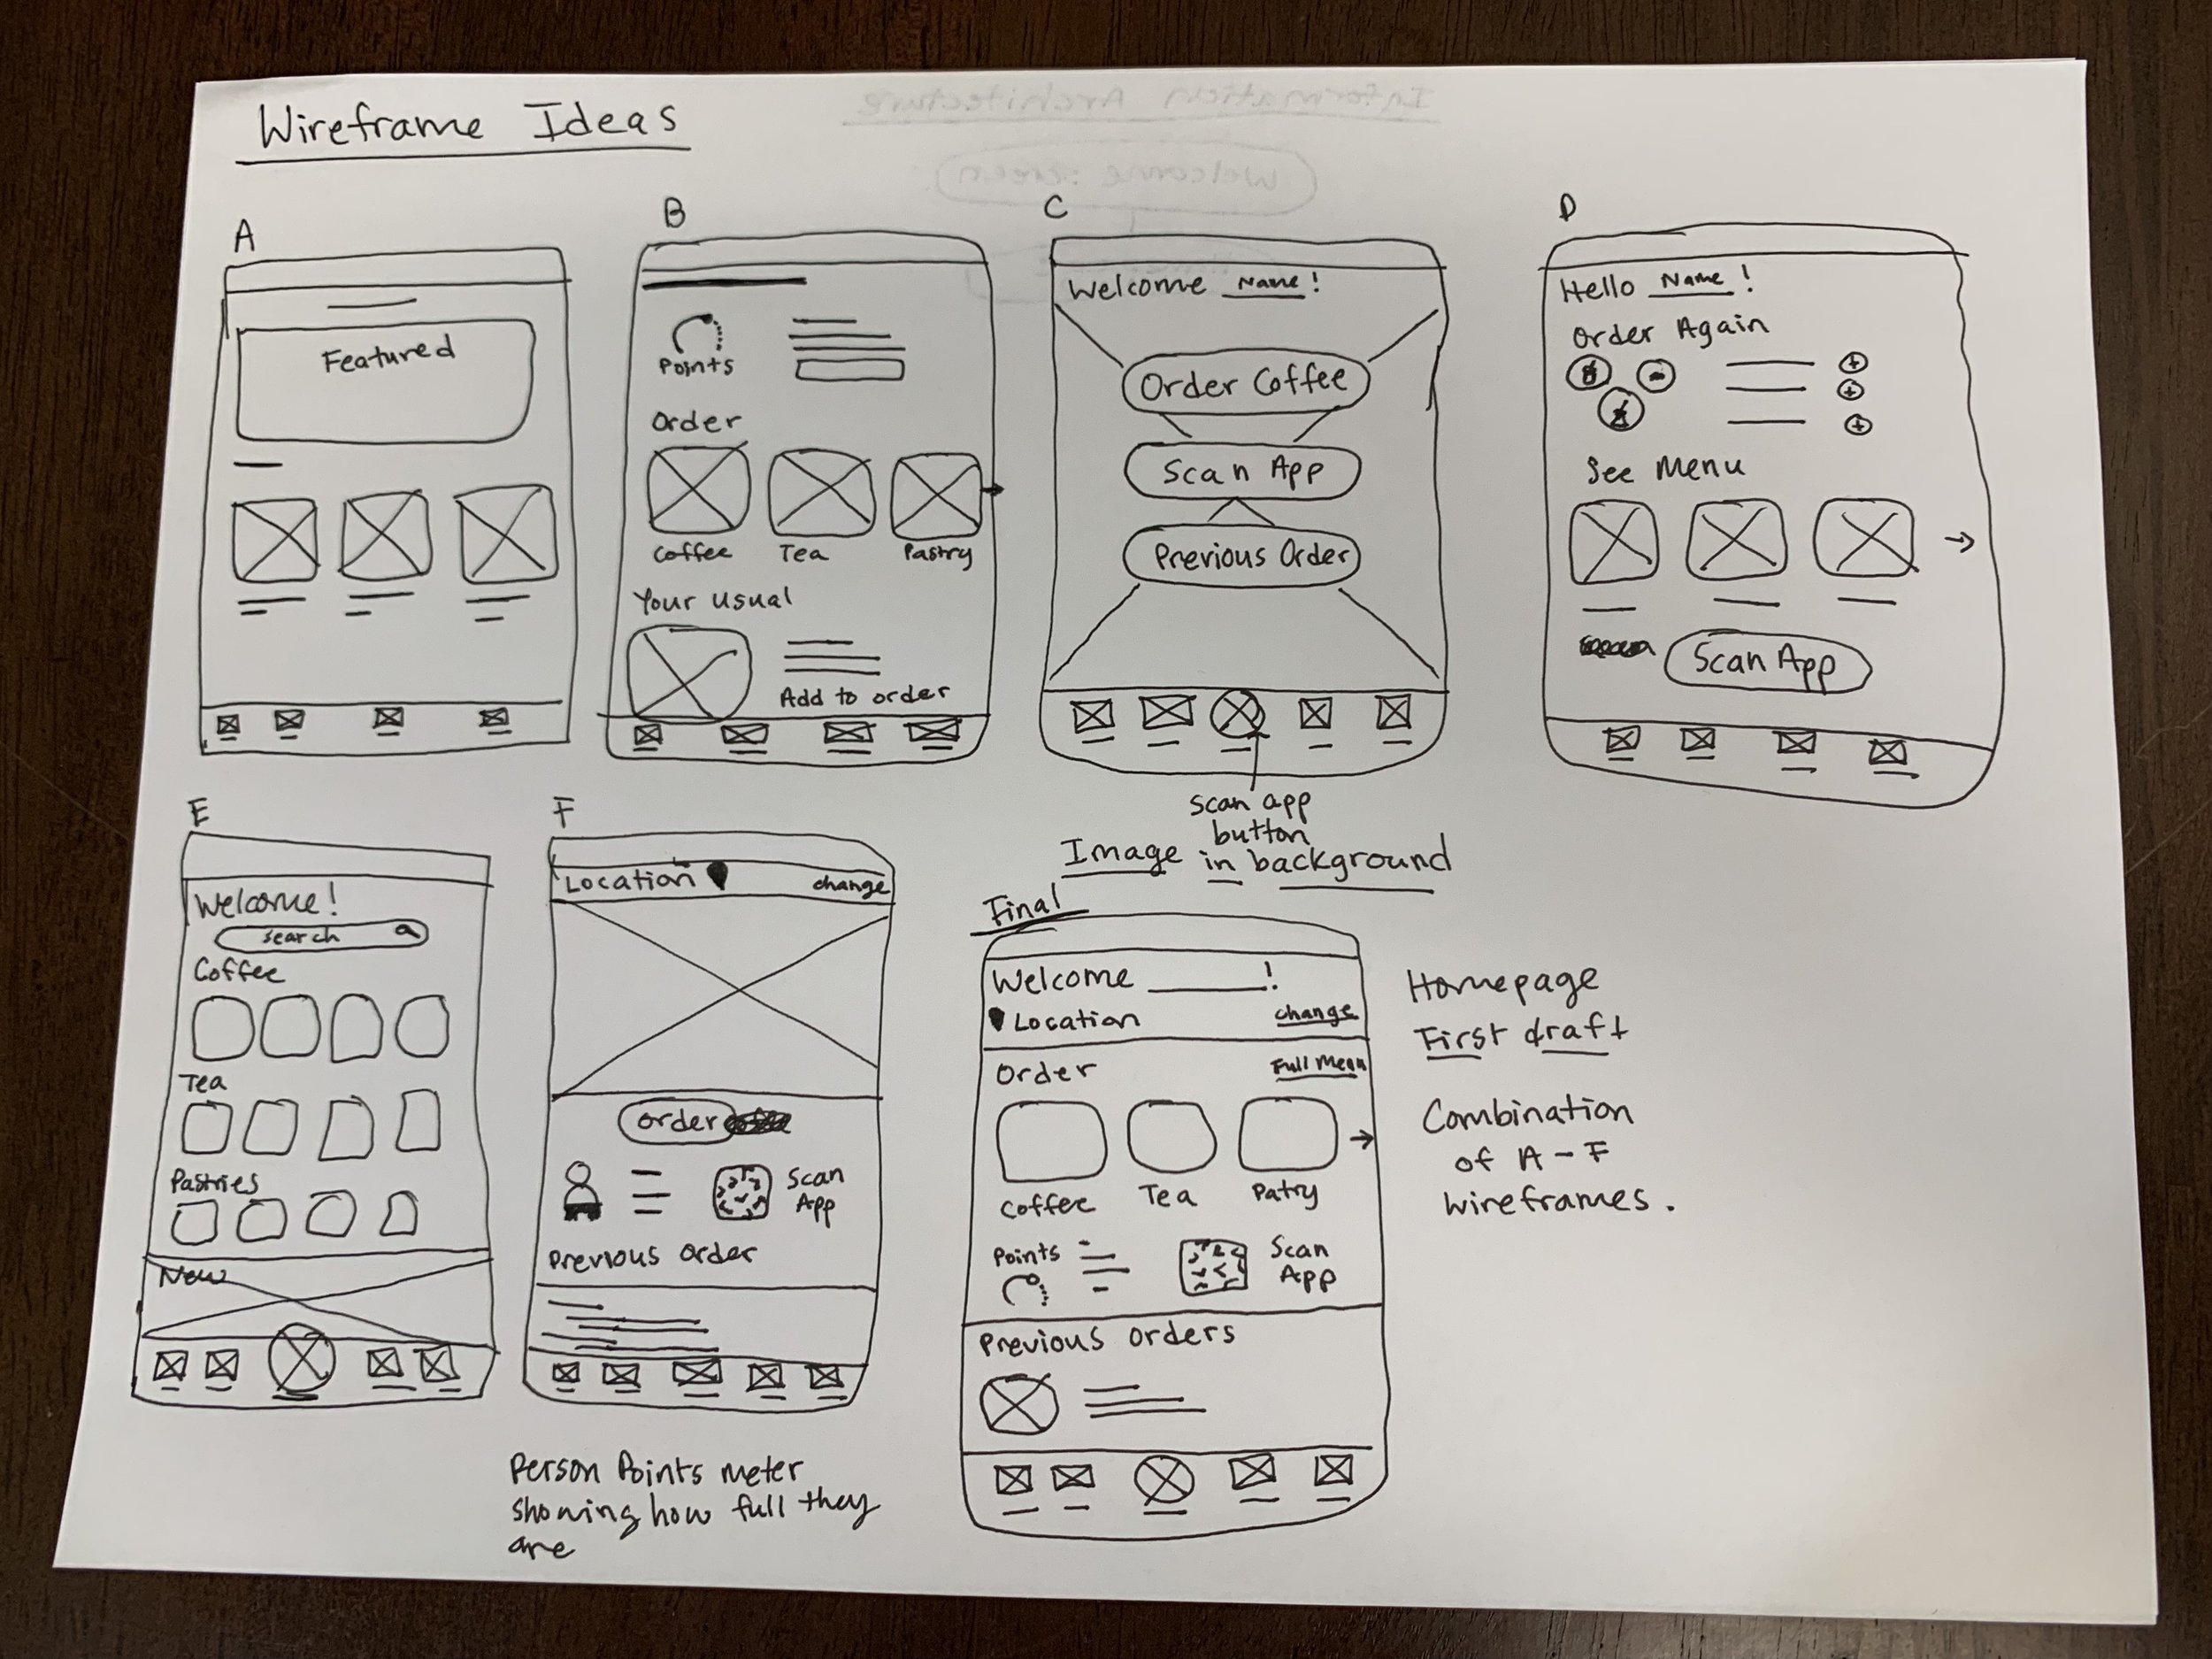 Information Architecture
Welcome screen
Wireframe Ideas
A
Featured
B
Points
Order
Coffee Tea Pastry
Your usual
Add to order
C
Welcome Name!
Order Coffee
Scan App
Previous Order
scan app
button
Image in background
D
Hello Name!
Order Again
See Menu
Scan App
E
Welcome!
search
Coffee
Tea
Pastries
New
F
Location change
order
Scan
App
Previous order
Person Points meter
showing how full they
are
Final
Welcome ______!
Location change
Order Full Menu
Coffee Tea Patry
Points
Scan
App
Previous orders
Homepage
First draft
Combination
of A-F
wireframes.